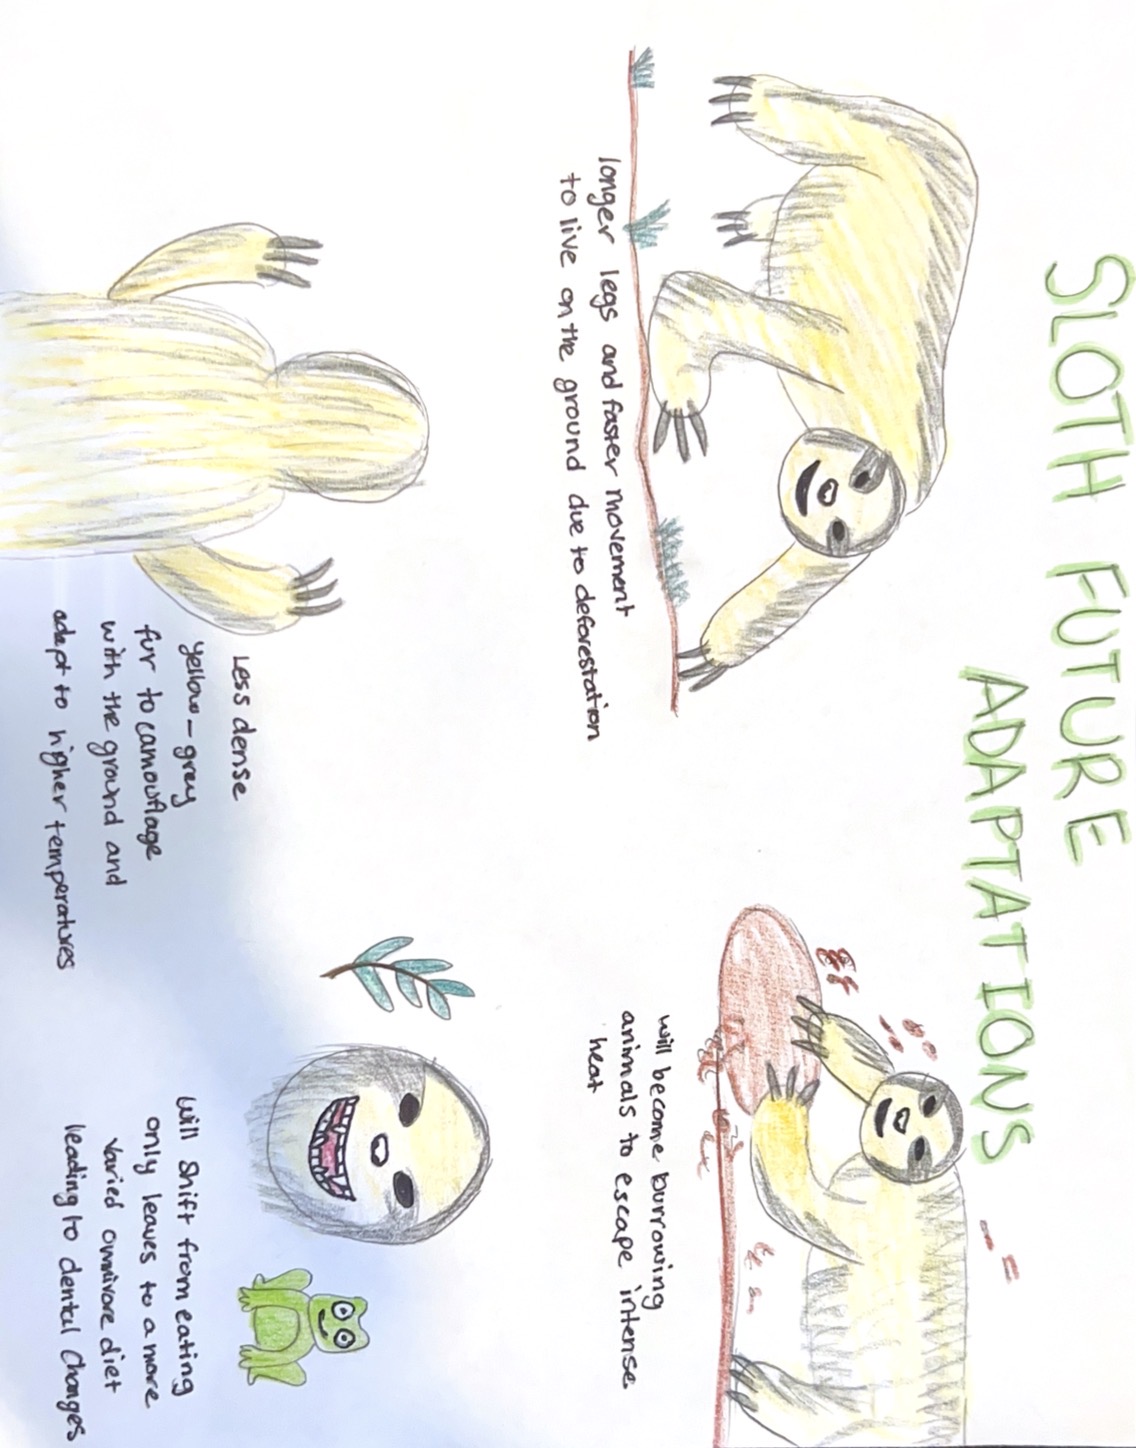 SLOTH FUTURE
ADAPTATIONS
longer legs and faster movement
to live on the ground due to deforestation
will become burrowing
animals to escape intense
heat
Less dense
yellow-grey
fur to camouflage
with the ground and
adapt to higher temperatures
will shift from eating
only leaves to a more
varied omnivore diet
leading to dental changes